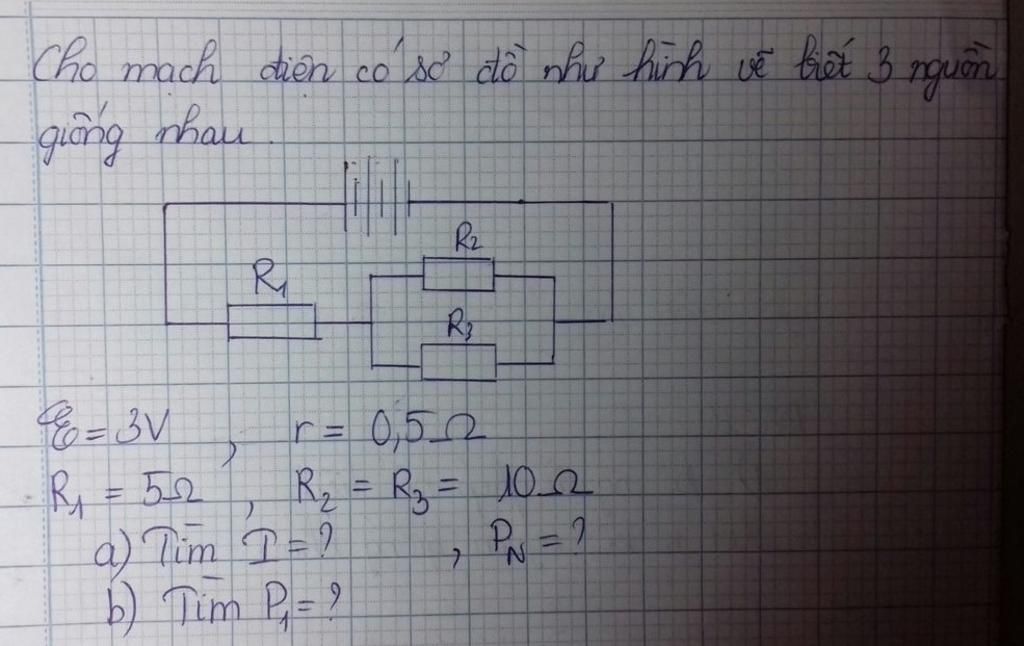 Cho mạch điện có sơ đồ như hình vẽ biết 3 nguồn
giống nhau.
R2
R1
R3
ℰ = 3V , r = 0,5Ω
R1 = 5Ω , R2 = R3 = 10Ω
a) Tìm I = ? , PN = ?
b) Tìm P1 = ?